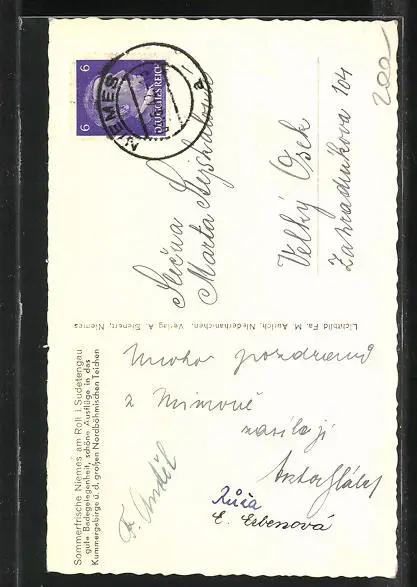 Sommerfrische Niemes am Roll i. Sudetengau
gute Badegelegenheit, schöne Ausflüge in das
Kummergebirge u. d. großen Nordböhmischen Teichen
Lichtbild Fa. M. Aurich, Niederhanichen. Verlag A. Bienert, Niemes
6 6
DEUTSCHES REICH
NIEMES
a
200
Slečna
Marta
Velký Osek
Zahradníkova 104
Mnoho pozdravů
z Mimoně
zasílají
Fr. Anděl
Růža
E. Erbenová